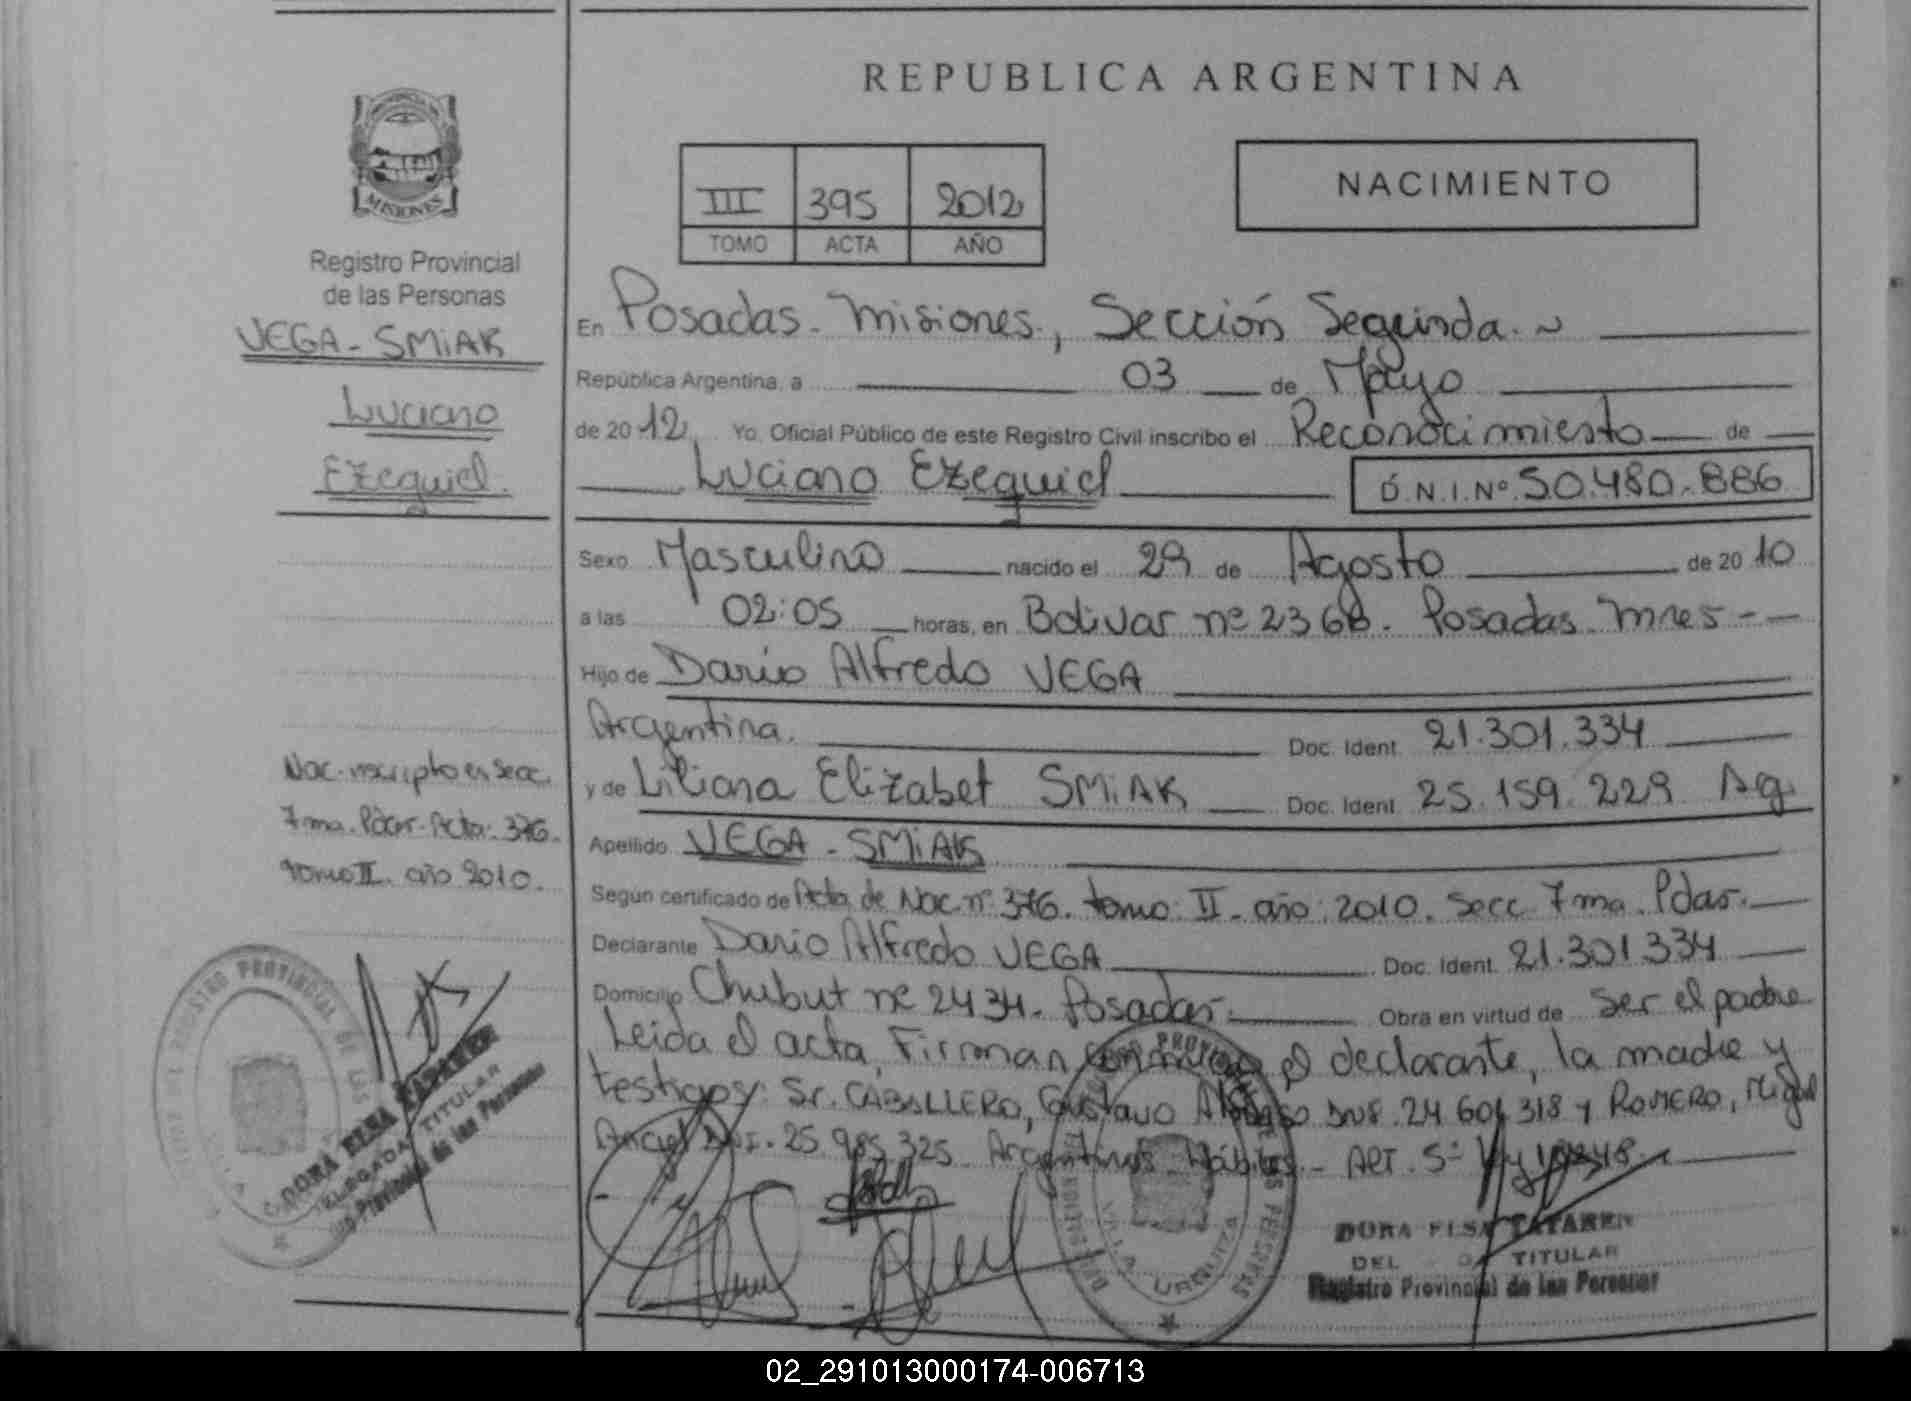 REPUBLICA ARGENTINA
PROVINCIA DE
MISIONES
Registro Provincial
de las Personas
VEGA - SMiAK
Luciano
Ezequiel.
Nac. inscripto en Secc.
7ma. Pdas. Acta: 376.
tomo II. año 2010.
III 395 2012
TOMO ACTA AÑO
NACIMIENTO
En Posadas - Misiones, Sección Segunda. ~
República Argentina, a 03 de Mayo
de 2012. Yo, Oficial Público de este Registro Civil inscribo el Reconocimiento de
Luciano Ezequiel D.N.I.Nº 50.480.886
Sexo Masculino nacido el 29 de Agosto de 2010
a las 02:05 horas, en Bolivar nº 2368. Posadas. Mnes - -
Hijo de Dario Alfredo VEGA
Argentina. Doc. Ident. 21.301.334
y de Liliana Elizabet SMiAK Doc. Ident. 25.159.229 Ag.
Apellido VEGA - SMiAK
Según certificado de Acta de Nac. nº 376. tomo: II - año: 2010. Secc 7ma. Pdas.
Declarante Dario Alfredo VEGA Doc. Ident. 21.301.334
Domicilio Chubut nº 2434. Posadas. Obra en virtud de Ser el padre
Leida el acta, Firman el declarante, la madre y
testigos: Sr. CABALLERO, Gustavo 24.601.318 y ROMERO, Miguel
Angel DNI. 25.985.325. Argentinos Hábiles - ART. 5º
DORA ELSA TATAREN
DELEGADA TITULAR
Registro Provincial de las Personas
REGISTRO PROVINCIAL DE LAS PERSONAS
VILLA URQUIZA
DORA ELSA TATAREN
DELEGADA TITULAR
Registro Provincial de las Personas
02_291013000174-006713